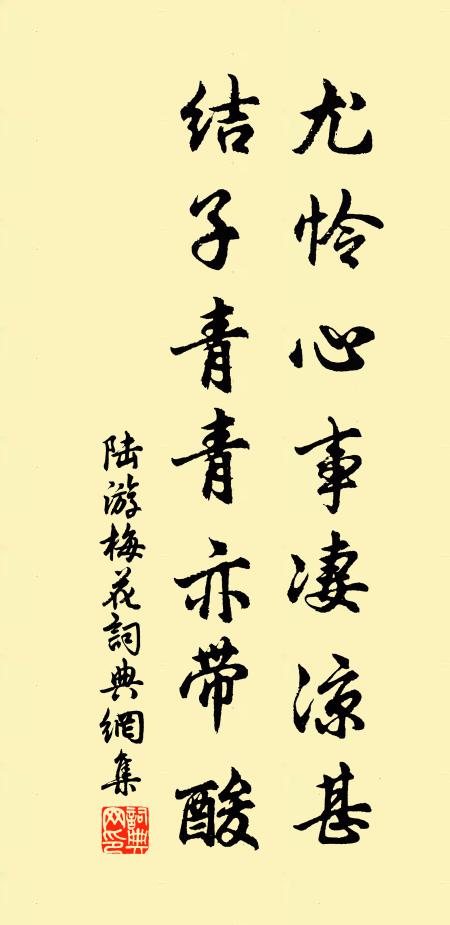 尤怜心事凄凉甚
结子青青亦带酸
陆游梅花詞典網集
詞典网印